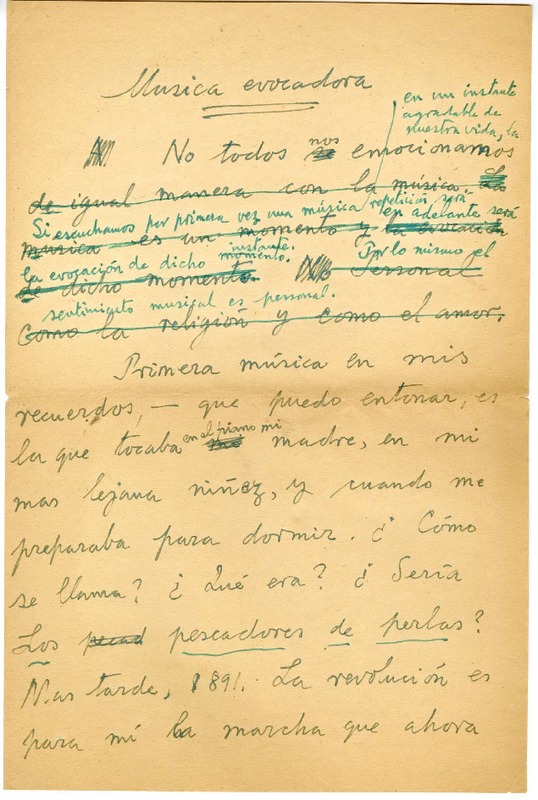 Musica evocadora
en un instante
agradable de
nuestra vida, la
No todos nos emocionamos
de igual manera con la música. Las
Si escuchamos por primera vez una música repetición será
en adelante será
musica es un momento y la evocación
la evocación de dicho momento. instante.
Por lo mismo el
de dicho momento. Personal
sentimiento musical es personal.
como la religión y como el amor.
Primera música en mis
recuerdos, — que puedo entonar, es
la que tocaba en el piano mi madre, en mi
mas lejana niñez, y cuando me
preparaba para dormir. ¿Cómo
se llama? ¿Qué era? ¿Sería
Los pecad pescadores de perlas?
Mas tarde, 1891. La revolución es
para mí la marcha que ahora